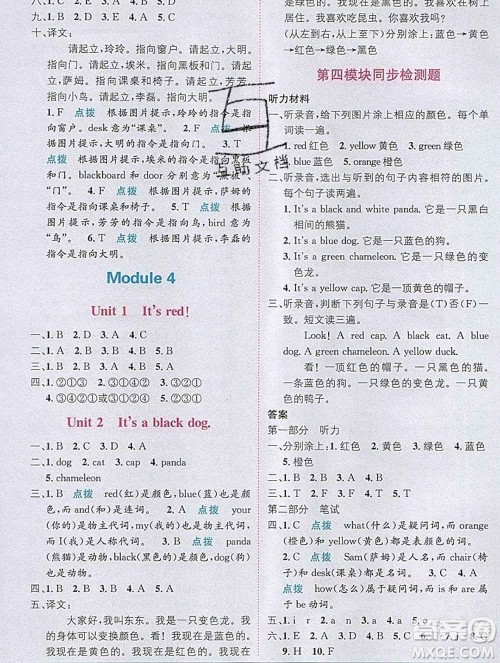 九、1. B  2. D  3. C  4. A
十、译文:
请起立,玲玲。指向窗户。请起立,大明。
指向门。请起立,埃米。指向黑板和门。请
起立,萨姆。指向课桌和椅子。请起立,芳芳。
指向小鸟。请起立,李磊。指向大明。
1. F  点拨  根据图片提示,玲玲的指令是指
向窗户。desk 意为“课桌”。  2. F  点拨
根据图片提示,大明的指令是指向门。  3. T
点拨  根据图片提示,埃米的指令是指向黑板
和门。blackboard 和 door 分别意为“黑板”
“门”。  4. T  点拨  根据图片提示,萨姆的指
令是指向课桌和椅子。  5. T  点拨  根据图
片提示,芳芳的指令是指向小鸟,bird 意为
“鸟”。  6. T  点拨  根据图片提示,李磊的指
令是指向大明。
Module 4
Unit 1  It's red!
一、1. B  2. D  3. A  4. C
二、1. B  2. A  3. A
三、1. C  2. A  3. B  4. B
四、①②①③  ③①④②  ①②③①
五、③①②④⑤或③④⑤①②
Unit 2  It's a black dog.
一、1. B  2. C  3. D  4. A
二、1. dog  2. cat  3. cap  4. panda
5. chameleon
三、1. B  点拨  red(红)是颜色,blue(蓝)也是颜
色,and(和)是连词。  2. A  点拨  your
(你的)是物主代词,my(我的)是物主代词,
而 I(我)是人称代词。  3. B  点拨  panda
(熊猫)是动物,black(黑色的)是颜色,dog
(狗)是动物。
四、1. D  2. B  3. A  4. C
五、译文:
大家好,我叫东东。我是一只变色龙。我
的身体可以变换颜色。看!我现在是一只
绿色的。我喜欢在树上居
住。我喜欢吃昆虫。我喜欢我的家和大树。
(从左到右,从上到下)蓝色→黄色→
橙色→红色→绿色→黑色
第四模块同步检测题
听力材料
一、听录音,给下列图片涂上相应的颜色。每个单
词读一遍。
1. red 红色  2. yellow 黄色  3. green 绿色
4. blue 蓝色  5. orange 橙色
二、听录音,选择与所听内容相符的图片。
每个句子读两遍。
1. It's a black and white panda. 它是一只黑白
相间的熊猫。
2. It's a blue dog. 它是一只蓝色的狗。
3. It's a green chameleon. 它是一只绿色的变
色龙。
4. It's a yellow cap. 它是一顶黄色的帽子。
三、听录音,判断下列句子与录音是否相符。
短文读三遍。
Look! A red cap. A black dog. A
green chameleon. A yellow duck.
看!一顶红色的帽子。一只黑色的
狗。一只绿色的变色龙。一只黄色
的鸭子。
答案
第一部分  听力
一、分别涂上:1. 红色  2. 黄色  3. 绿色  4. 蓝色
5. 橙色
二、1. B  2. A  3. A  4. B
第二部分  笔试
四、1. C  点拨  what(什么)是疑问词,而 orange
(橙色)和 yellow(黄色)是表示颜色的词。
2. B  点拨  Sam(萨姆)是人名,而 chair(椅
子)和 desk(课桌)是物品。  3. A  点拨
how(怎么样)属于疑问词,其他两项均属于